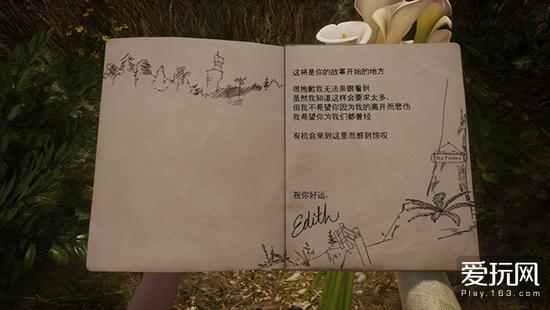 这将是你的故事开始的地方
很抱歉我无法亲眼看到
虽然我知道这样会要求太多、
但我不希望你因为我的离开而悲伤
我希望你为我们都曾经
有机会来到这里而感到惊叹
The Finches
祝你好运、
Edith
爱玩网
Play.163.com